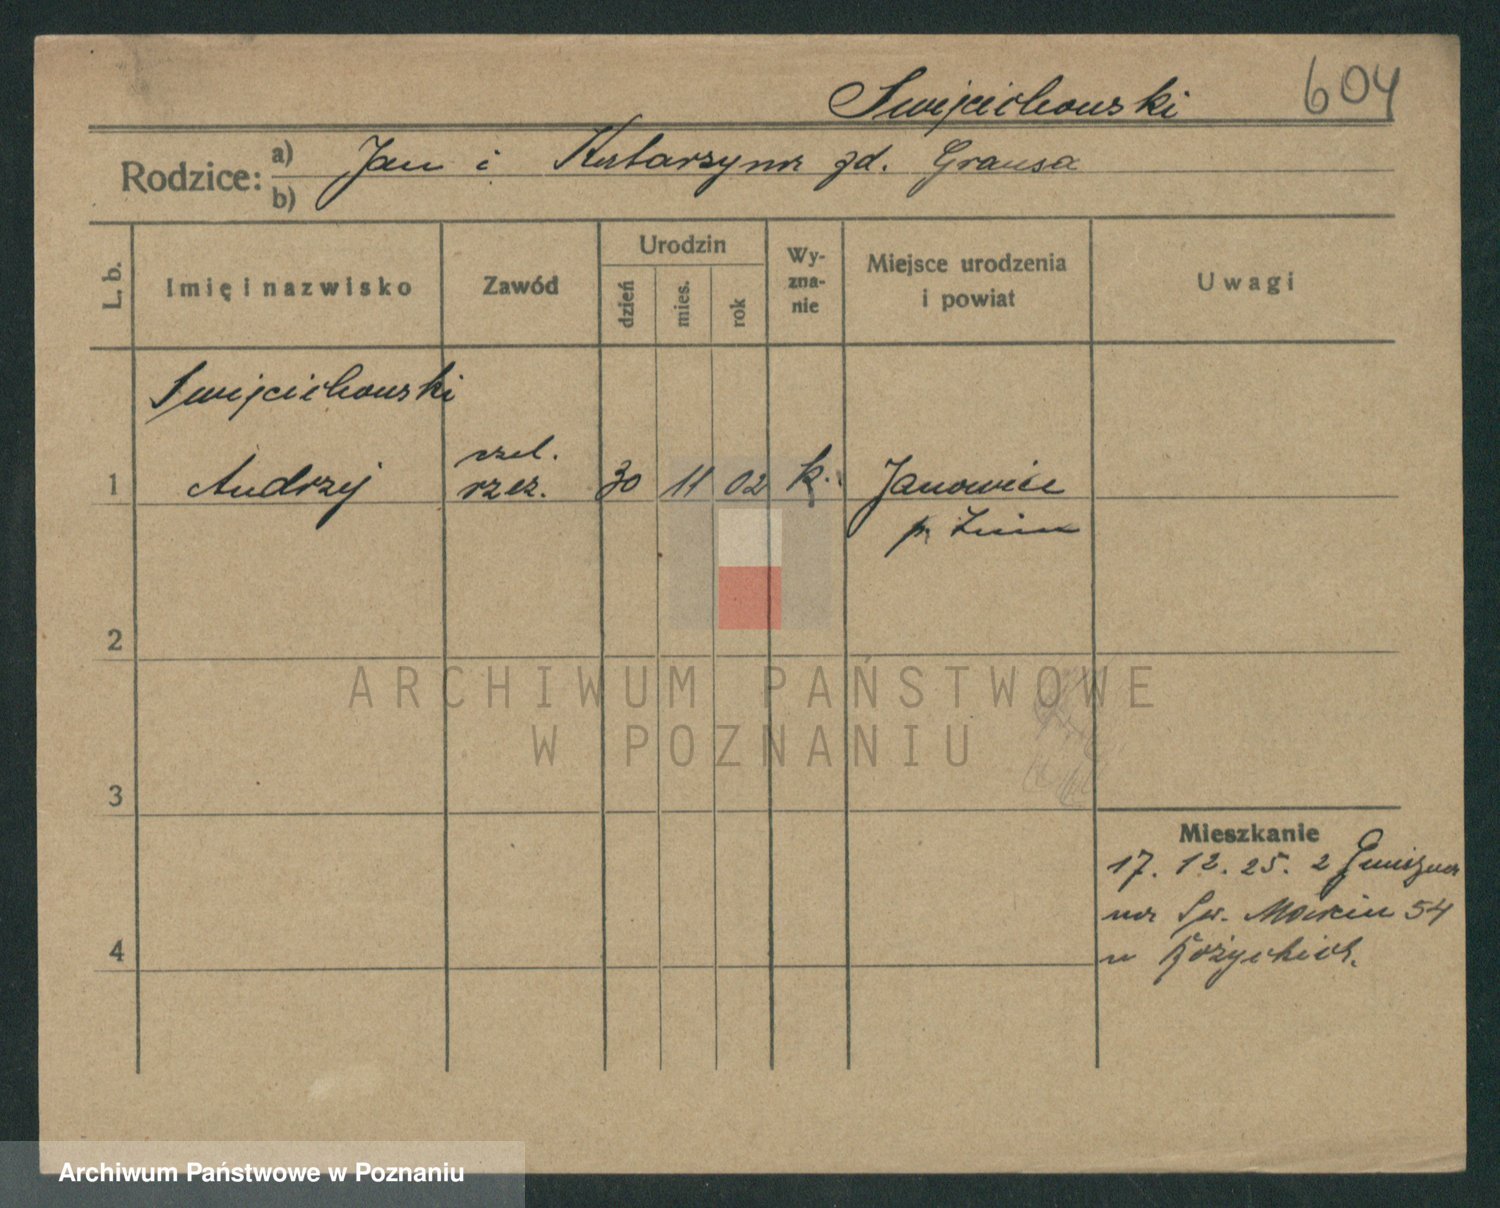 Swięcichowski 604
Rodzice: a) b) Jan i Katarzyna zd. Gransa
L. b. Imię i nazwisko Zawód Urodzin dzień mies. rok Wyznanie Miejsce urodzenia i powiat Uwagi
Swięcichowski
1 Andrzej czel. rzeź. 30 11 02 k. Janowiec
p. Żnin
2
ARCHIWUM PAŃSTWOWE
W POZNANIU
3
Mieszkanie
17. 12. 25. z Gniezna
na Św. Marcin 54
u Różyckich.
4
Archiwum Państwowe w Poznaniu